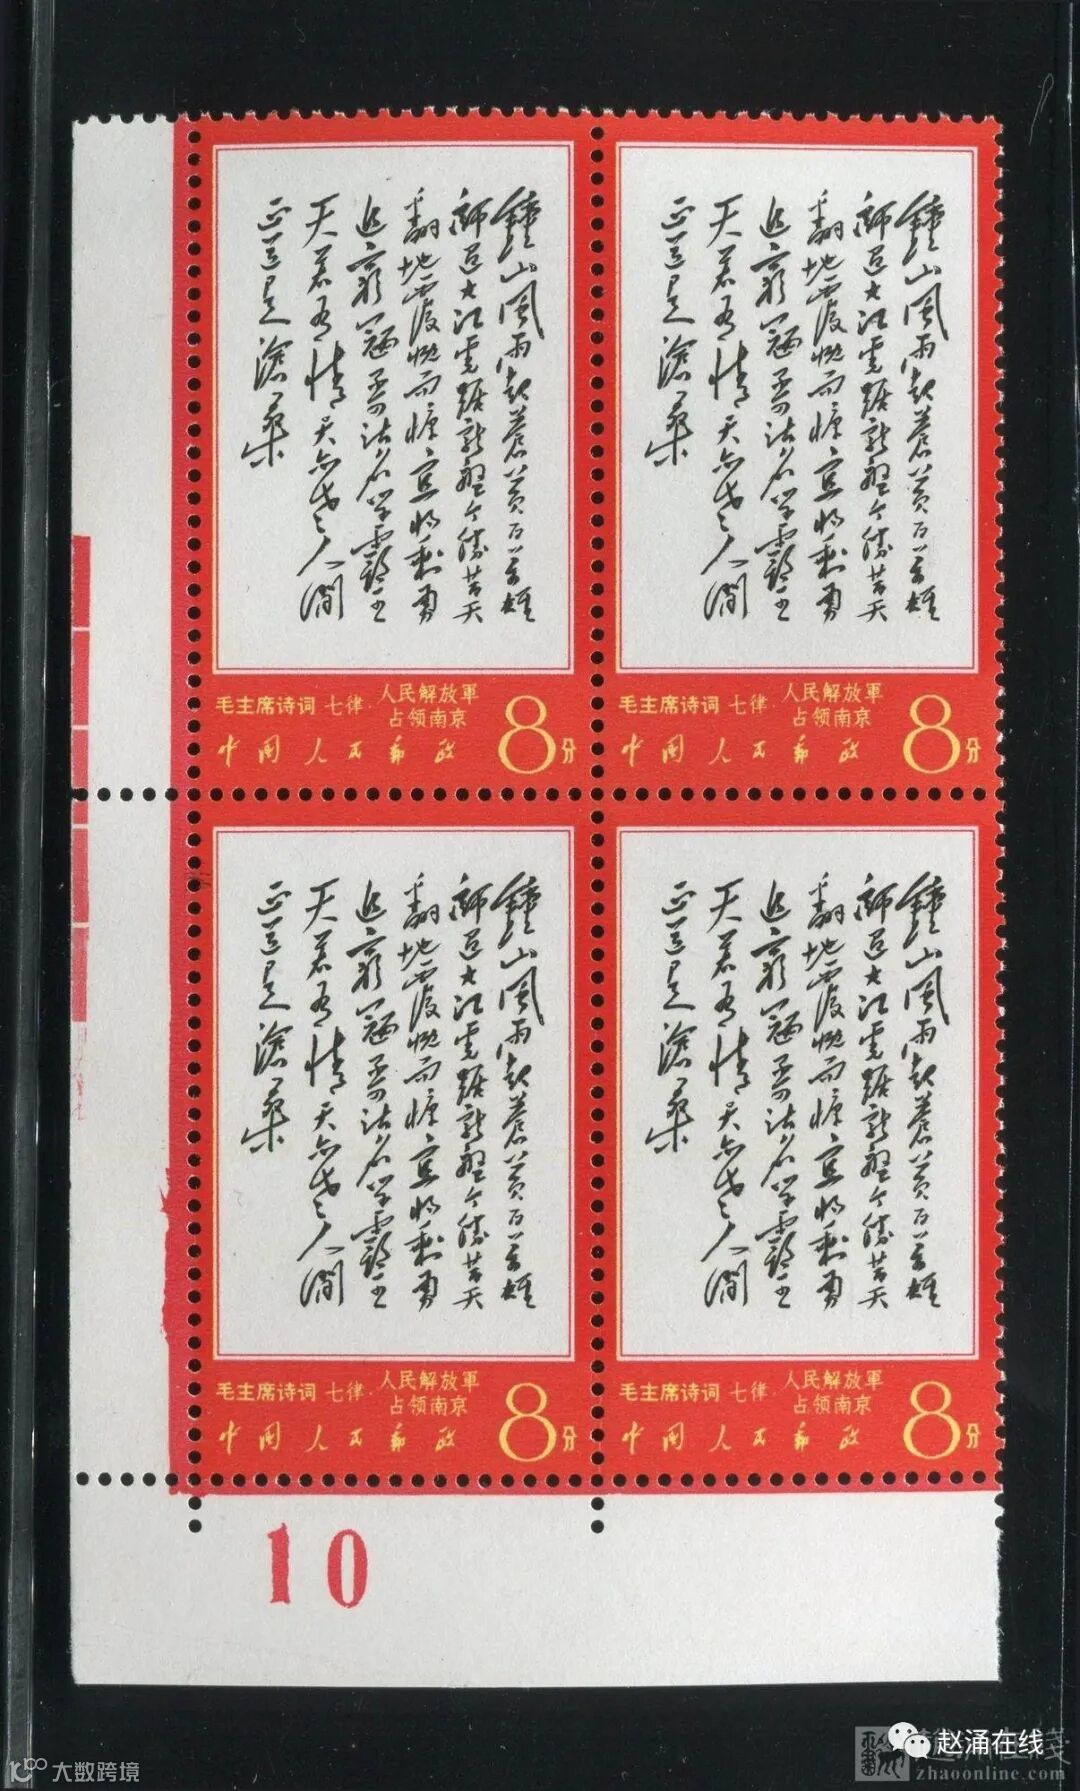 鐘山風雨起蒼黃百萬雄
師過大江虎踞龍盤今勝昔天
翻地覆慨而慷宜將剩勇
追窮寇不可沽名學霸王
天若有情天亦老人間
正道是滄桑
毛主席诗词 七律·人民解放軍
占领南京
中国人民郵政
8分
鐘山風雨起蒼黃百萬雄
師過大江虎踞龍盤今勝昔天
翻地覆慨而慷宜將剩勇
追窮寇不可沽名學霸王
天若有情天亦老人間
正道是滄桑
毛主席诗词 七律·人民解放軍
占领南京
中国人民郵政
8分
鐘山風雨起蒼黃百萬雄
師過大江虎踞龍盤今勝昔天
翻地覆慨而慷宜將剩勇
追窮寇不可沽名學霸王
天若有情天亦老人間
正道是滄桑
毛主席诗词 七律·人民解放軍
占领南京
中国人民郵政
8分
鐘山風雨起蒼黃百萬雄
師過大江虎踞龍盤今勝昔天
翻地覆慨而慷宜將剩勇
追窮寇不可沽名學霸王
天若有情天亦老人間
正道是滄桑
毛主席诗词 七律·人民解放軍
占领南京
中国人民郵政
8分
10
赵涌在线
zhaoonline.com
大数跨境